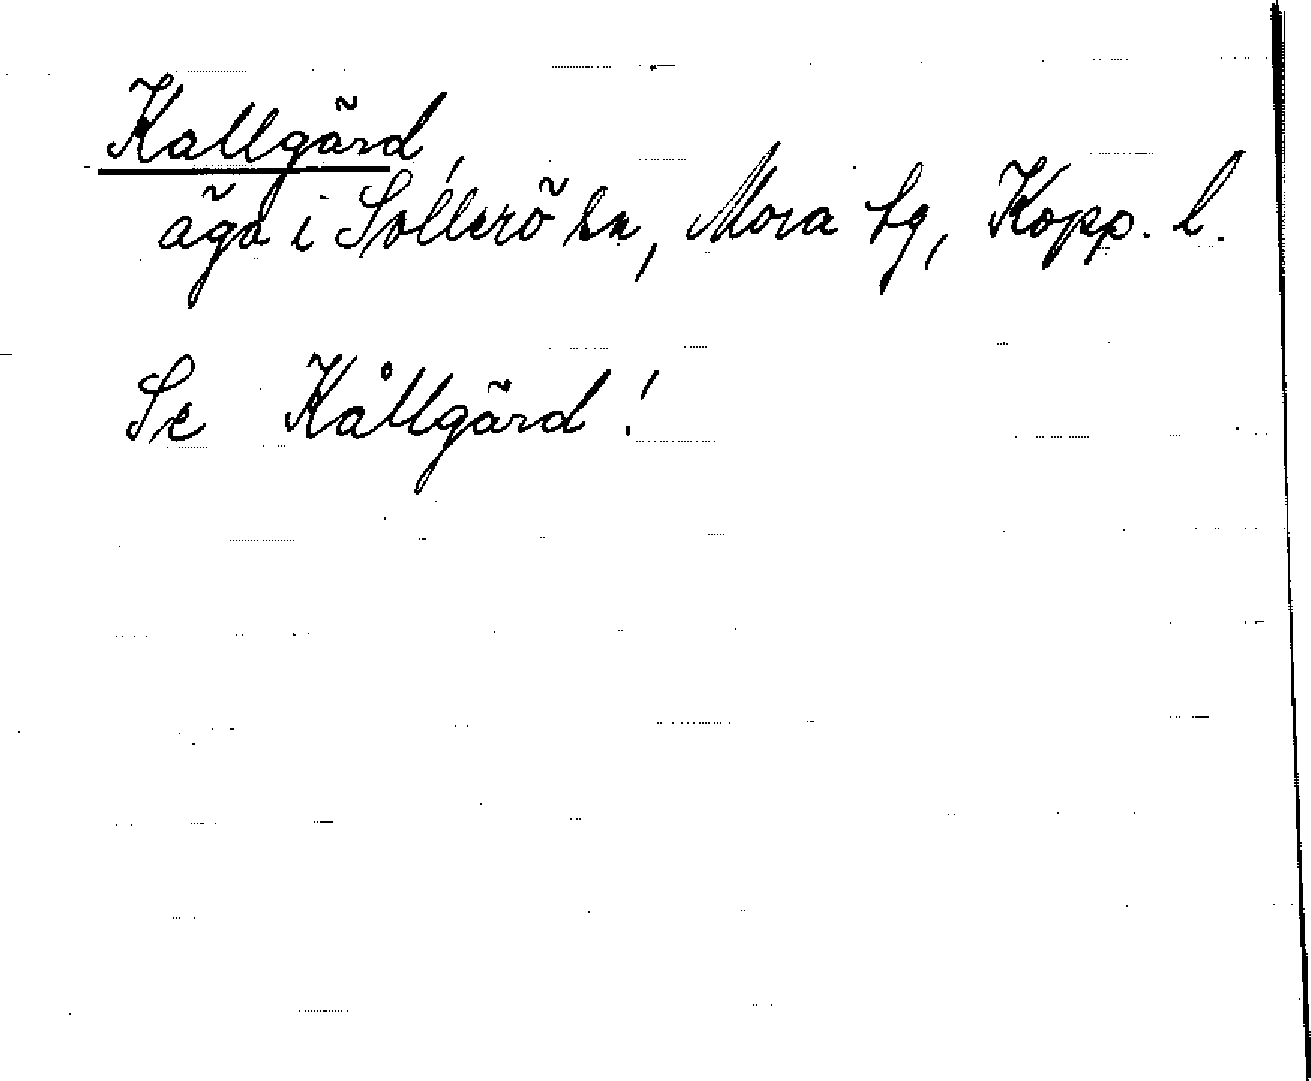 Kallgärd,
äga i Sollerö sn, Mora tg, Kopp. l.
Se Kållgärd!